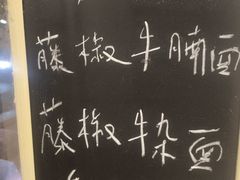 藤椒牛腩面
藤椒牛杂面